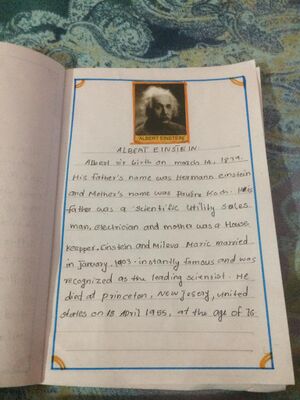 ALBERT EINSTEIN
ALBERT EINSTEIN
Albert sir birth on march 14, 1879.
His father's name was Hermann einstein
and Mother's name was Pauline Koch. His
father was a scientific Utility sales
man, electrician and mother was a House
keepper. Einstein and Mileva Maric married
in January. 1903. instantly famous and was
recognized as the leading scientist. He
died at princeton, New Jersery, united
states on 18 April 1955, at the age of 76